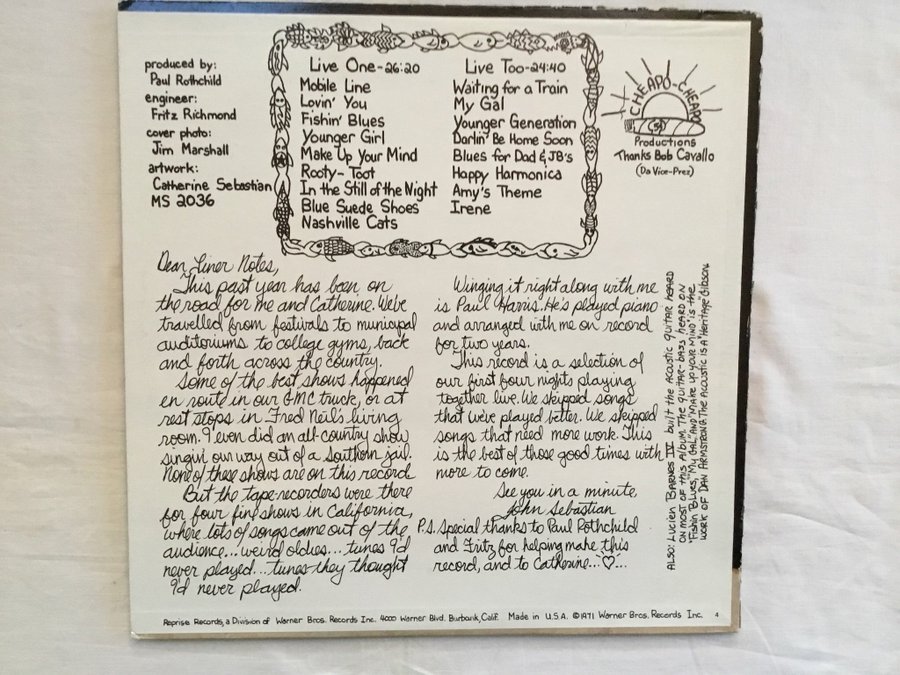 produced by:
Paul Rothchild
engineer:
Fritz Richmond
cover photo:
Jim Marshall
artwork:
Catherine Sebastian
MS 2036
Live One-26:20
Mobile Line
Lovin' You
Fishin' Blues
Younger Girl
Make Up Your Mind
Rooty-Toot
In the Still of the Night
Blue Suede Shoes
Nashville Cats
Live Too-24:40
Waiting for a Train
My Gal
Younger Generation
Darlin' Be Home Soon
Blues for Dad & JB's
Happy Harmonica
Amy's Theme
Irene
CHEAPO-CHEAPO
Productions
Thanks Bob Cavallo
(Da Vice-Prez)
Dear Liner Notes,
This past year has been on
the road for me and Catherine. We've
travelled from festivals to municipal
auditoriums to college gyms, back
and forth across the country.
Some of the best shows happened
en route in our GMC truck, or at
rest stops in Fred Neil's living
room. I even did an all-country show
singin' our way out of a Southern jail.
None of these shows are on this record
But the tape-recorders were there
for four fine shows in California,
where lots of songs came out of the
audience...weird oldies...tunes I'd
never played...tunes they thought
I'd never played.
Winging it right along with me
is Paul Harris. He's played piano
and arranged with me on record
for two years.
This record is a selection of
our first four nights playing
together live. We skipped songs
that we've played better. We skipped
songs that need more work. This
is the best of those good times with
more to come.
See you in a minute,
John Sebastian
P.S. Special thanks to Paul Rothchild
and Fritz for helping make this
record, and to Catherine...♡...
ALSO: LUCIEN BARNES IV built the ACOUSTIC GUITAR HEARD
ON MOST OF THIS ALBUM. THE GUITAR-BASS HEARD ON
"Fishin' Blues", "My GAL", AND "MAKE UP YOUR MIND" is the
WORK OF DAN ARMSTRONG. THE ACOUSTIC IS A "HERITAGE" Gibson.
Reprise Records, a Division of Warner Bros. Records Inc. 4000 Warner Blvd. Burbank, Calif. Made in U.S.A. ©1971 Warner Bros. Records Inc. 4